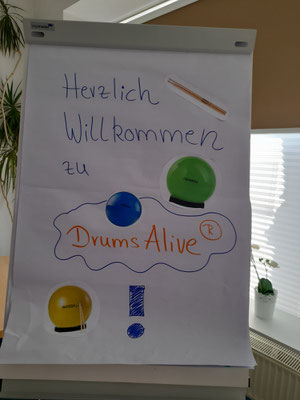 Herzlich
Willkommen
zu
Drums Alive ®
!